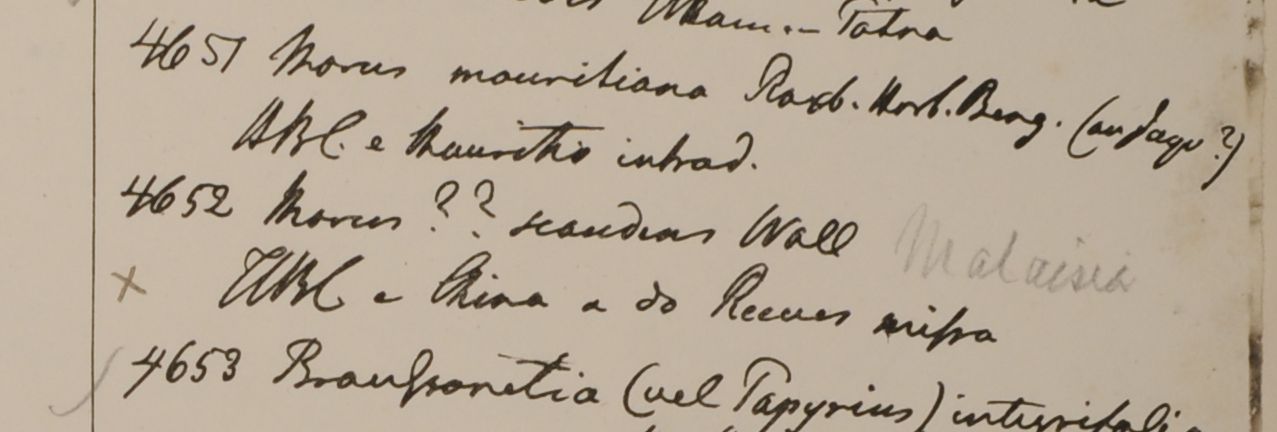 Tatna
4651 Morus mauritiana Roxb. Hort. Beng. (an Jaqu?)
HBC. e Mauritio introd.
4652 Morus ?? scandens Wall Malaisia
x HBC e China a do Reeves missa
4653 Broussonetia (vel Papyrius) integrifoli